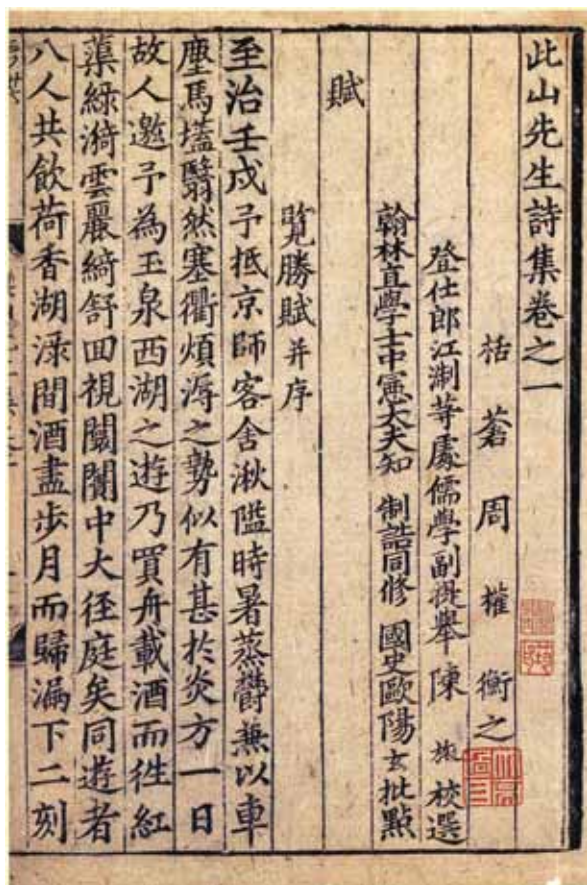 此山先生詩集卷之一
栝蒼周權衡之
登仕郎江淛等處儒學副提舉陳旅校選
翰林直學士中憲大夫知 制誥同修 國史歐陽玄批點
賦
覽勝賦并序
至治壬戌予抵京師客舍湫隘時暑蒸鬱兼以車
塵馬壒翳然塞衢煩溽之勢似有甚於炎方一日
故人邀予為玉泉西湖之遊乃買舟載酒而徃紅
蕖綠漪雲麗綺舒回視闤闠中大径庭矣同遊者
八人共飲荷香湖渌間酒盡步月而歸漏下二刻